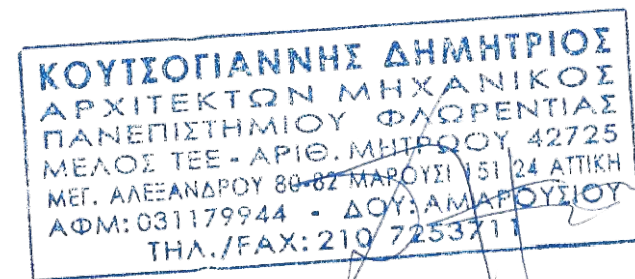 ΚΟΥΤΣΟΓΙΑΝΝΗΣ ΔΗΜΗΤΡΙΟΣ
ΑΡΧΙΤΕΚΤΩΝ ΜΗΧΑΝΙΚΟΣ
ΠΑΝΕΠΙΣΤΗΜΙΟΥ ΦΛΩΡΕΝΤΙΑΣ
ΜΕΛΟΣ ΤΕΕ - ΑΡΙΘ. ΜΗΤΡΩΟΥ 42725
ΜΕΓ. ΑΛΕΞΑΝΔΡΟΥ 80-82 ΜΑΡΟΥΣΙ 151 24 ΑΤΤΙΚΗ
ΑΦΜ: 031179944 - ΔΟΥ: ΑΜΑΡΟΥΣΙΟΥ
ΤΗΛ./FAX: 210 7253711